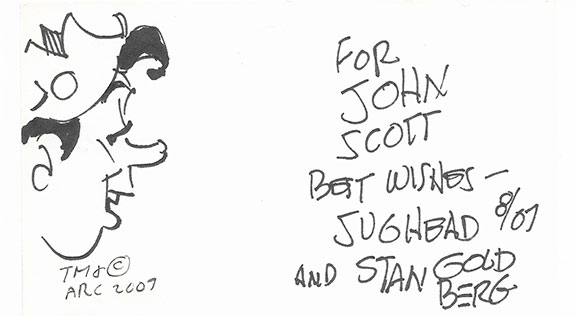 FOR
JOHN
SCOTT
BEST WISHES —
JUGHEAD 8/07
AND STAN GOLD
BERG
TM & ©
ARC 2007